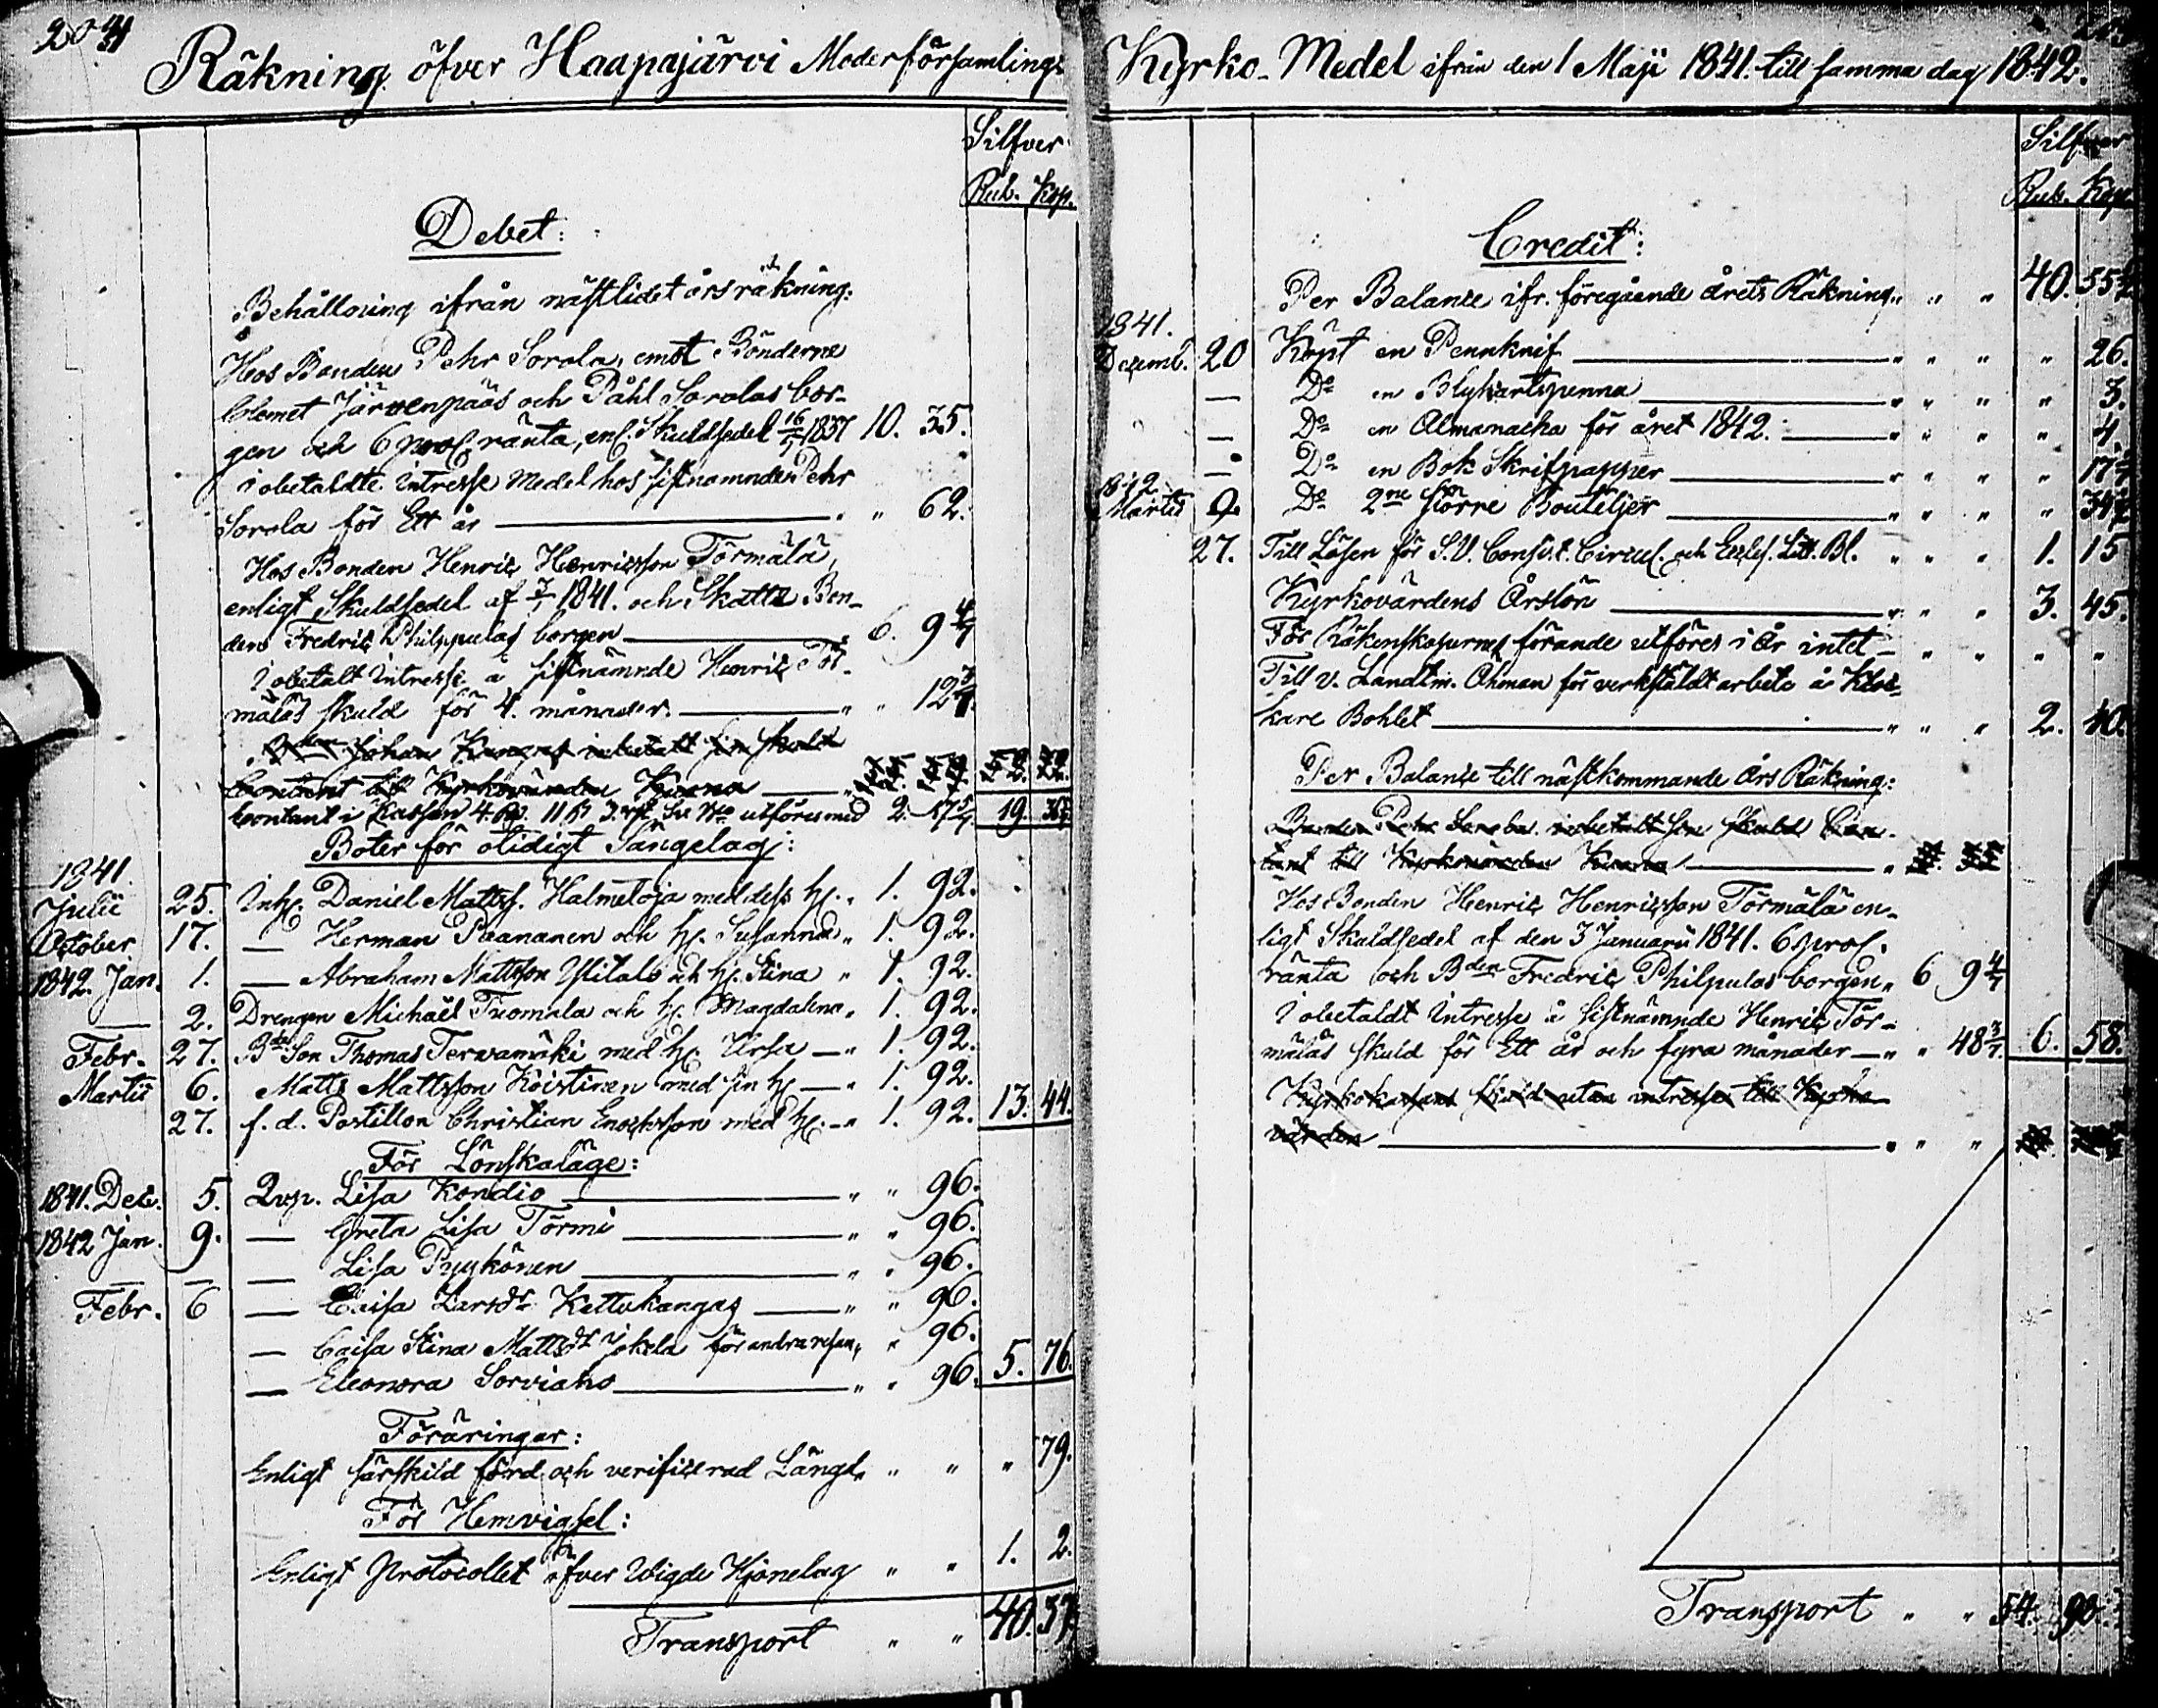 204
Räkning öfver Haapajärvi Moderförsamlings
Silfver
Rub. Kop.
Debet:
Behållning ifrån nästlidet års räkning:
Hos Bonden Pehr Sorola, emot Bönderne
Järvenpääs och Påhl Sorolas bor-
gen och 6 proC. ränta, enl. Skuldsedel 16/1 1837 10. 35.
i obetaldte Intresse Medel hos sistnämnde Pehr
Sorola för Ett år " 62.
Hos Bonden Henric Henricsson Törmälä,
enligt Skuldsedel af 3/1 1841. och Skatte Bon-
den Fredric Philppulas borgen 6. 9 4/7
I obetalt Intresse å sistnämnde Henric Tör-
mäläs skuld för 4. månader. " " 12 3/7
Johan Kangas inbetalt sin skuld
Contant till Kyrkovärden
Contant i Kassan 4. 11 3. utföres med 2. 17 5/7 19.
Böter för otidigt Sängelag:
1841.
Julii 25. Inh. Daniel Mattss. Halmetoja med dess h. " 1. 92.
October 17. — Herman Paananen och h. Susanna " 1. 92.
1842. Jan. 1. — Abraham Mattsson Ylitalo och h. Stina " 1. 92.
— 2. Drengen Michaël Tuomala och h. Magdalena " 1. 92.
Febr. 27. Bde Son Thomas Terwamäki med h. Ursa — " 1. 92.
Martii 6. Matts Mattsson Koistinen med sin h. — " 1. 92.
27. f. d. Postillon Christian Enochsson med h. — " 1. 92. 13. 44.
För Lönskaläge:
1841. Dec. 5. Qvp. Lisa Kondio " " 96.
1842 Jan. 9. — Greta Lisa Törmi " " 96.
— — — Lisa Pyykönen " " 96.
Febr. 6 — Caisa Larsdr Kettukangas " " 96.
— Caisa Stina Mattsdr Jokela för andra resan " " 96.
— Eleonora Sorviaho " " 96. 5. 76.
Föräringar:
Enligt särskild förd och verificerad Längd " " " 79.
För Hemvigsel:
Enligt Protocollet öfver Wigde Hjonelag " " 1. 2.
Transport " " 40. 37.
Kyrko-Medel ifrån den 1 Maji 1841. till samma dag 1842.
Silfver
Rub. Kop.
Credit:
Per Balance ifr. föregående årets Räkning " " " 40. 55
1841.
Decemb. 20 Köpt en Pennknif " " " " 26.
— Do en Blyertspenna " " " " 3.
— Do en Almanacka för året 1842. " " " " 4.
— Do en Bok Skrifpapper " " " " 17
1842
Martii 9. Do 2ne större Bouteljer " " " " 34
27. Till Lösen för S. V. Consist. Circul. och Eccles. Litt. Bl. " " " 1. 15
Kyrkovärdens Årslön " " " 3. 45.
För Räkenskapernes förande utföres i år intet — " " " " "
Till v. Landtm. Öhman för verkställdt arbete å Kloc-
kare Bohlet " " " 2. 40.
Per Balance till nästkommande års Räkning:
Bonden Pehr Sorola inbetalt sin skuld Con-
tant till Kyrkovärden
Hos Bonden Henric Henricsson Törmälä en-
ligt Skuldsedel af den 3 Januarii 1841. 6 proC.
ränta och Bden Fredric Philpulas borgen " 6 9 4/7
I obetaldt Intresse å sistnämnde Henric Tör-
mäläs skuld för Ett år och fyra månader — " " 48 3/7 6. 58.
Kyrkokassans skuld utan intresse till Kyrko-
värden " " "
Transport " " 54. 90.